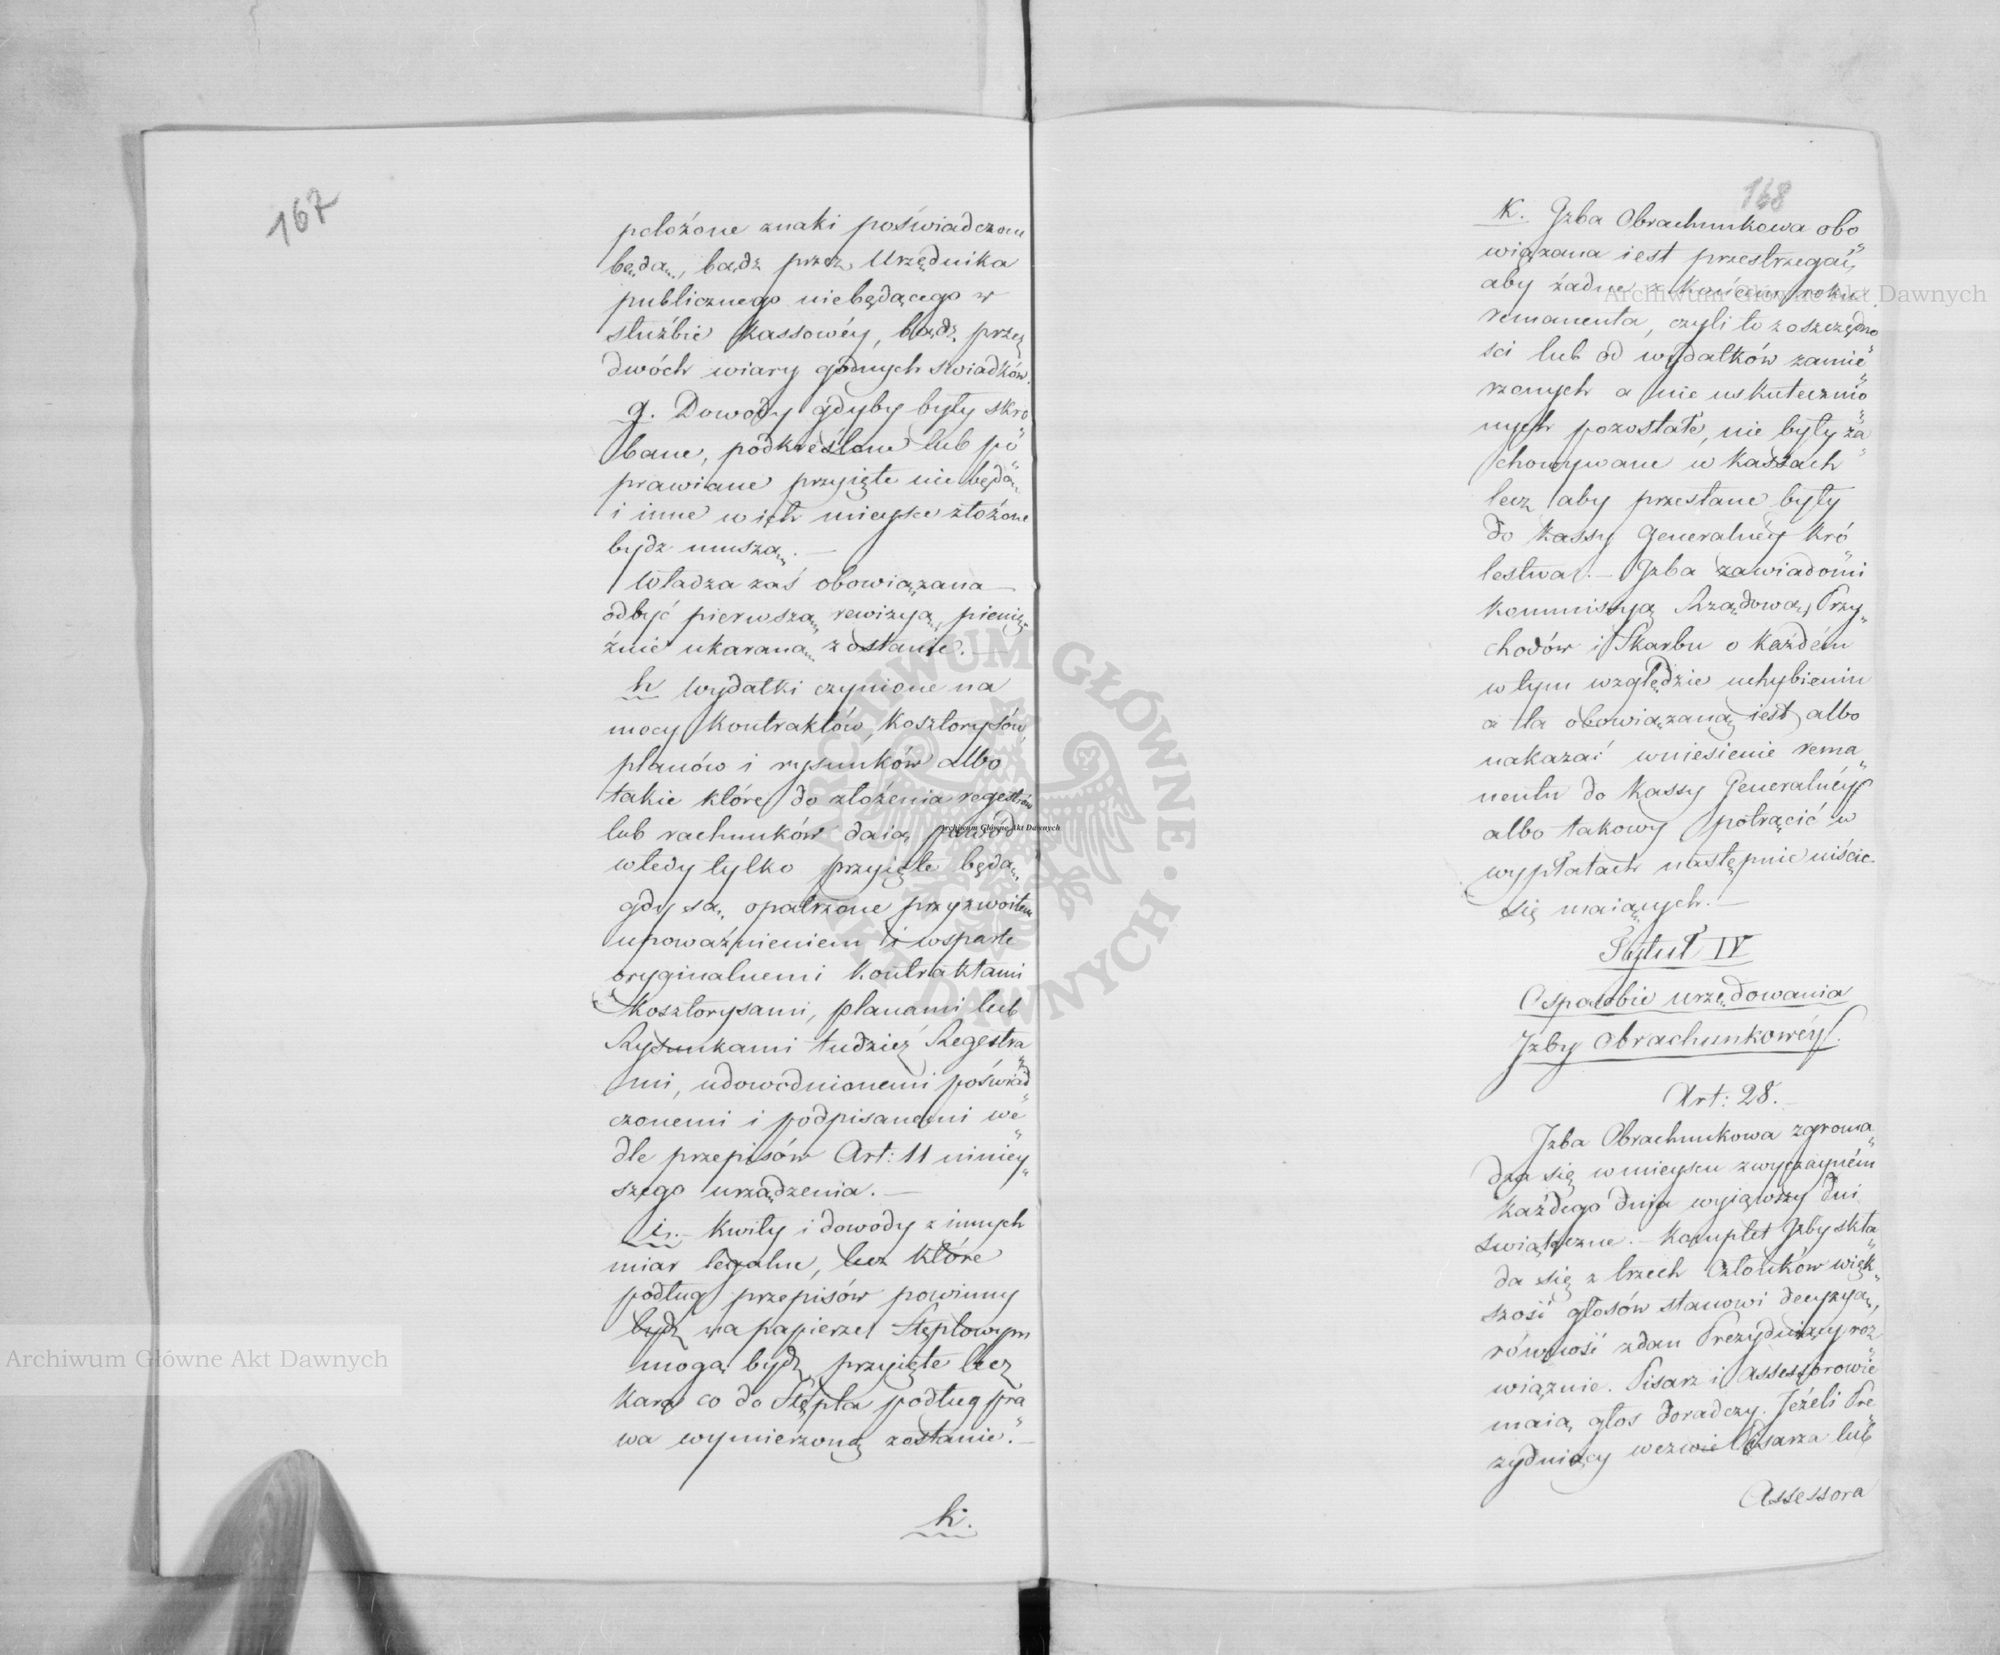 167
położone znaki poświadczone
będą, bądź przez Urzędnika
publicznego niebędącego w
służbie Kassowéy, bądź przez
dwóch wiary godnych świadków.
g. Dowody gdyby były skro„
bane, podkreślone lub po„
prawiane przyięte nie będą„
i inne w ich mieysce złożone
bydz muszą. —
Władza zaś obowiązana —
odbyć pierwszą rewizyą, pienię„
żnie ukaraną zostanie. —
h Wydatki czynione na
mocy Kontraktów, Kosztorysów,
planów i rysunków albo
takie które do złożenia regestrów
lub rachunków daią powód
wtedy tylko przyięte będą,
gdy są, opatrzone przyzwoitem
upoważnieniem i wsparte
oryginalnemi Kontraktami
Kosztorysami, planami lub
Rysunkami tudzież Regestra„
mi, udowodnionemi poświad„
czonemi i podpisanemi we„
dle przepisów Art: 11 niniey„
szego urządzenia. —
i. — Kwity i dowody z innych
miar legalne, lecz które
podług przepisów powinny
bydź na papierze Stęplowym
mogą bydź przyięte lecz
kara co do Stępla podług pra„
wa wymierzoną zostanie. —
k.
168
K. Izba Obrachunkowa obo„
wiązana iest przestrzegać,
aby żadne z końcem roku
remanenta, czyli to z oszczędno„
ści lub od wydatków zamie„
rzonych a nie uskutecznio„
nych pozostałe, nie były za„
chowywane w Kassach
lecz aby przesłane były
do Kassy Generalnéy Kró„
lestwa. — Izba zawiadomi
Kommissyą Rządową Przy„
chodów i Skarbu o każdém
w tym względzie uchybieniu
a ta obowiązaną iest, albo
nakazać wniesienie rema„
nentu do Kassy Generalnéy
albo takowy potrącić w
wypłatach następnie uiścić
się maiących. —
Tytuł IV
O sposobie urzędowania
Izby Obrachunkowéy.
Art: 28. —
Izba Obrachunkowa zgroma„
dza się w mieyscu zwyczayném
każdego dnia wyiąwszy dni
świąteczne. — Komplet Izby skła„
da się z trzech Członków więk„
szość głosów stanowi decyzyą,
równość zdań Prezyduiący roz„
wiąznie. Pisarz i Assessorowie
maią głos doradczy. Jeżeli Pre„
zyduiący wezwie Pisarza lub
Assessora
Archiwum Główne Akt Dawnych
Archiwum Główne Akt Dawnych
Archiwum Główne Akt Dawnych
ARCHIWUM GŁÓWNE · AKT DAWNYCH ·